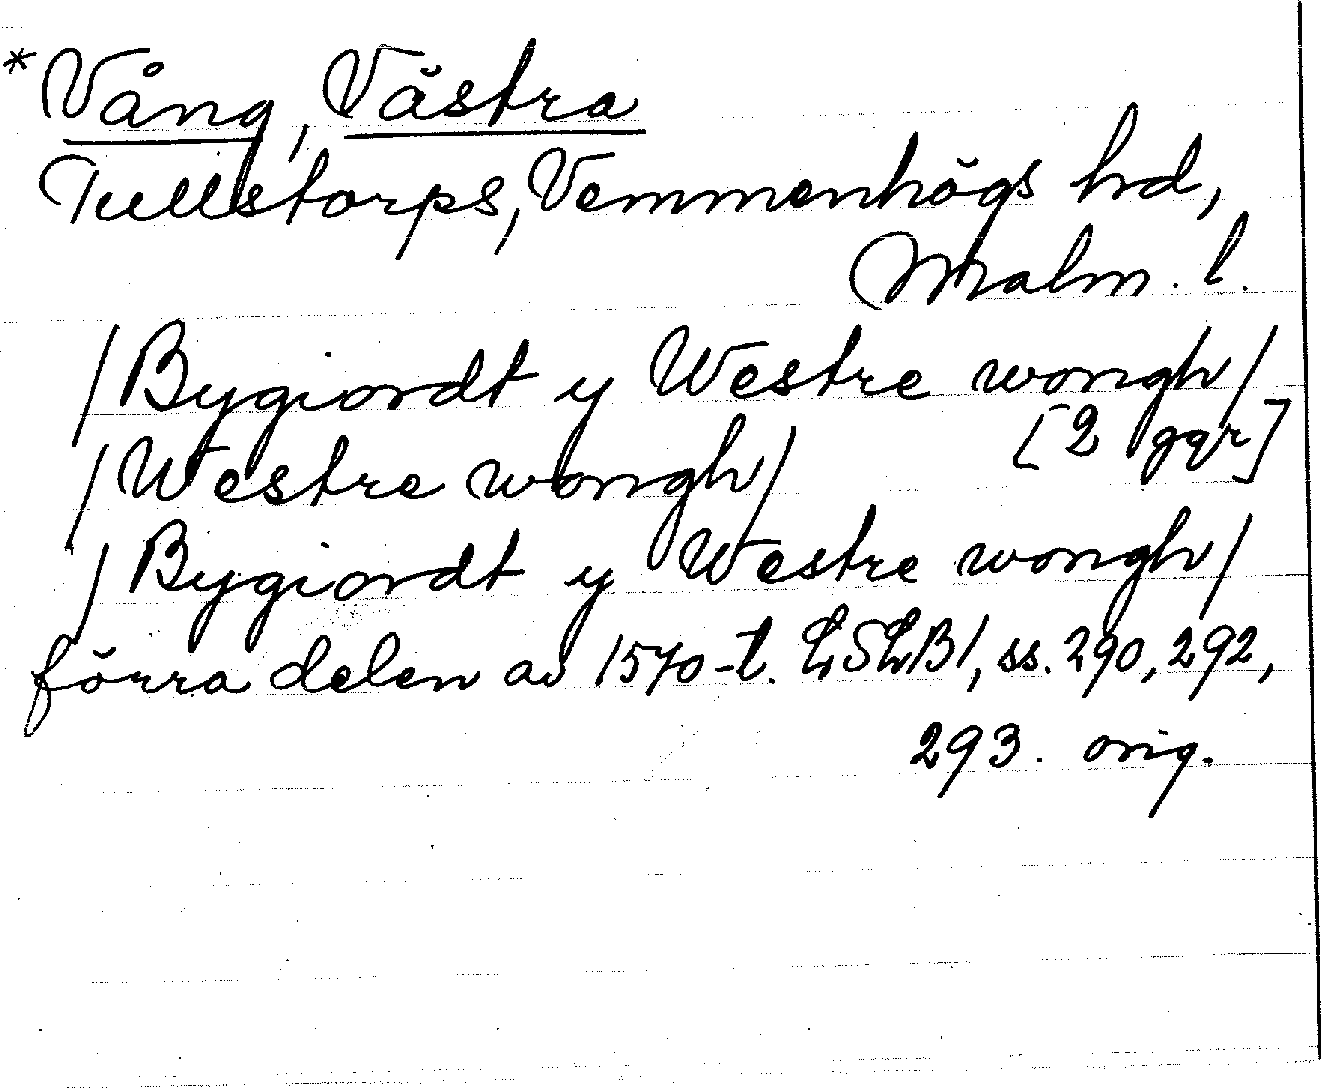 *Vång, Västra
Tullstorps, Vemmenhögs hd,
Malm. l.
/Bygiordt y Westre wongh/
[2 ggr]
/Westre wongh/
/Bygiordt y Westre wongh/
förra delen av 1570-t. LSLB1, ss. 290, 292,
293. orig.